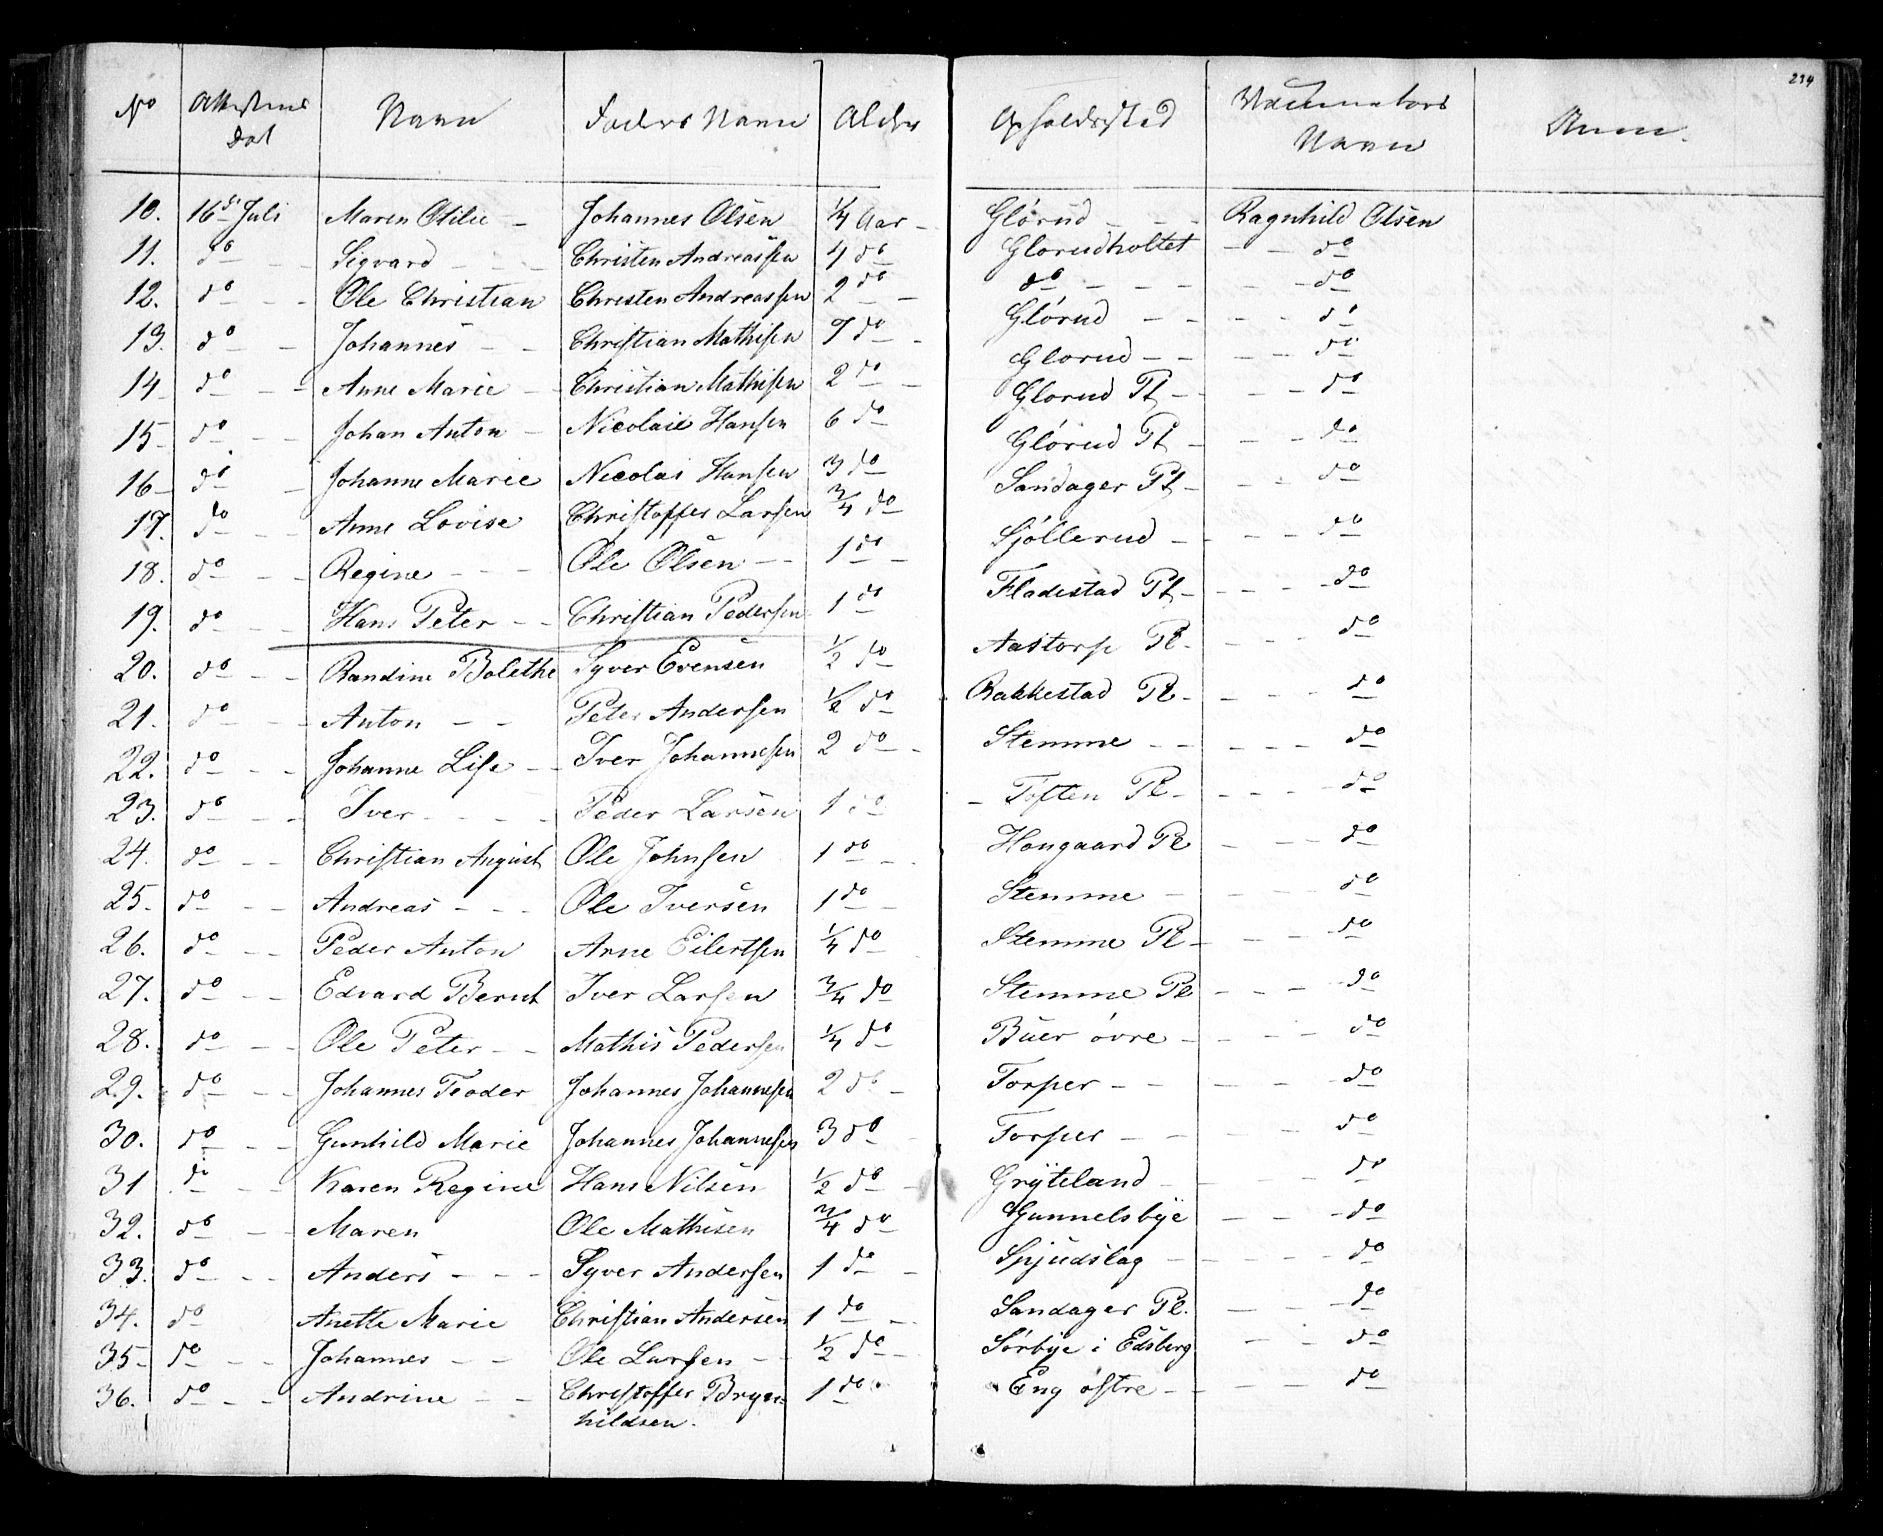 234
No | Attestens Dat | Navn | Faders Navn | Alder | Opholdssted | Vaccinators Navn | Anm.
10. | 16de Juli | Maren Otilie – | Johannes Olsen | 1/4 Aar – | Glórud – – – | Ragnhild Olsen
11. | do – – | Sigvard – – – | Christen Andreassen | 4 do | Glorudholtet – – | do
12. | do – – | Ole Christian | Christen Andreassen | 2 do – | do – – – – – | do
13. | do – | Johannes – – | Christian Mathisen | 7 do – | Glórud – – – – | do
14 | do – – | Anne Marie – – | Christian Mathisen | 2 do – | Glorud – – – – | do
15 – | do – – | Johan Anton – | Nicolaie Hansen | 6 do | Glorud Pl – – – – | do
16 – | do – | Johanne Marie | Nicolai Hansen | 3 do | Glórud Pl – – – | do
17. | do – – | Anne Lovise | Christoffer Larsen | 3/4 do | Sandager Pl – – – | do
18. | do – – | Regine – – – | Ole Olsen – – | 1 do – | Sjóllerud – – – – | do
19. | do – – | Hans Peter – – | Christian Pedersen | 1 do | Fladestad Pl – – – – | do
20. | do – – | Randine Bolethe | Syver Evensen | 1/2 do | Aastorp Pl – – – | do
21. | do – – | Anton – – | Peter Andersen | 1/2 do | Rakkestad Pl – – – – | do
22. | do – – | Johanne Lise – – | Iver Johannesen | 2 do – | Stemme – – – – – – | do
23. | do – – | Iver – – – – | Peder Larsen | 1 do | – Toften Pl – – – – – | do
24. | do – – | Christian August | Ole Johnsen | 1 do – | Hougaard Pl – – – | do
25. | do – – | Andreas – – – | Ole Iversen | 1 do – | Stemme – – – – | do
26. | do – – | Peder Anton | Arne Eilertsen | 1/4 do | Stemme Pl – – – | do
27. | do – – | Edvard Bernt | Iver Larsen | 3/4 do | Stemme Pl – – – – | do
28. | do – – | Ole Peter – – | Mathis Pedersen | 1/4 do | Búer óvre – – – – | do
29. | do – – | Johannes Teoder | Johannes Johannesen | 2 do – | Torper – – – – – | do
30. | do – – | Gunhild Marie | Johannes Johannesen | 3 do | Torper – – – – | do
31 | do – – | Karen Regine | Hans Nilsen | 1/2 do – | Grÿteland – – – – | do
32. | do – – | Maren | Ole Mathisen | 3/4 do | Gunnelsbÿe – – – | do
33. | do – – | Anders – – – | Syver Andersen | 1 do – | Spjudslag – – – – | do
34. | do | Anette Marie | Christian Andersen | 1 do – | Sandager Pl. – – – | do
35 – | do – – | Johannes – – | Ole Larsen – – | 1/2 do – | Sórbÿe i Edsberg – – | do
36. | do – – | Andrine – – | Christoffer Bryn- | 1 do | Eng óstre – – – – | do
hildsen.